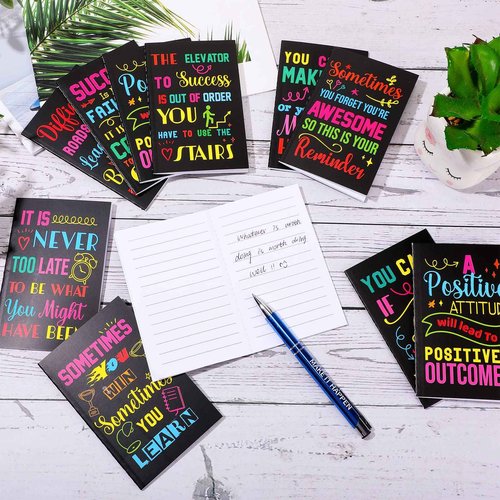 Difficult
ROADS
Lea
SUCC
FAIL
Po
THE ELEVATOR
TO Success
IS OUT OF ORDER
YOU
HAVE TO USE THE
STAIRS
YOU C
MAK
or
Sometimes
YOU FORGET YOU'RE
AWESOME
SO THIS IS YOUR
Reminder
IT IS
NEVER
TOO LATE
TO BE WHAT
You Might
HAVE BEEN
Whatever is worth
doing is worth doing
well !!
MAKE IT HAPPEN
SOMETIMES
YOU
WIN
Sometimes
YOU
LEARN
YOU CA
IF
A
Positive
ATTITUD
will lead to
POSITIVE
OUTCOME